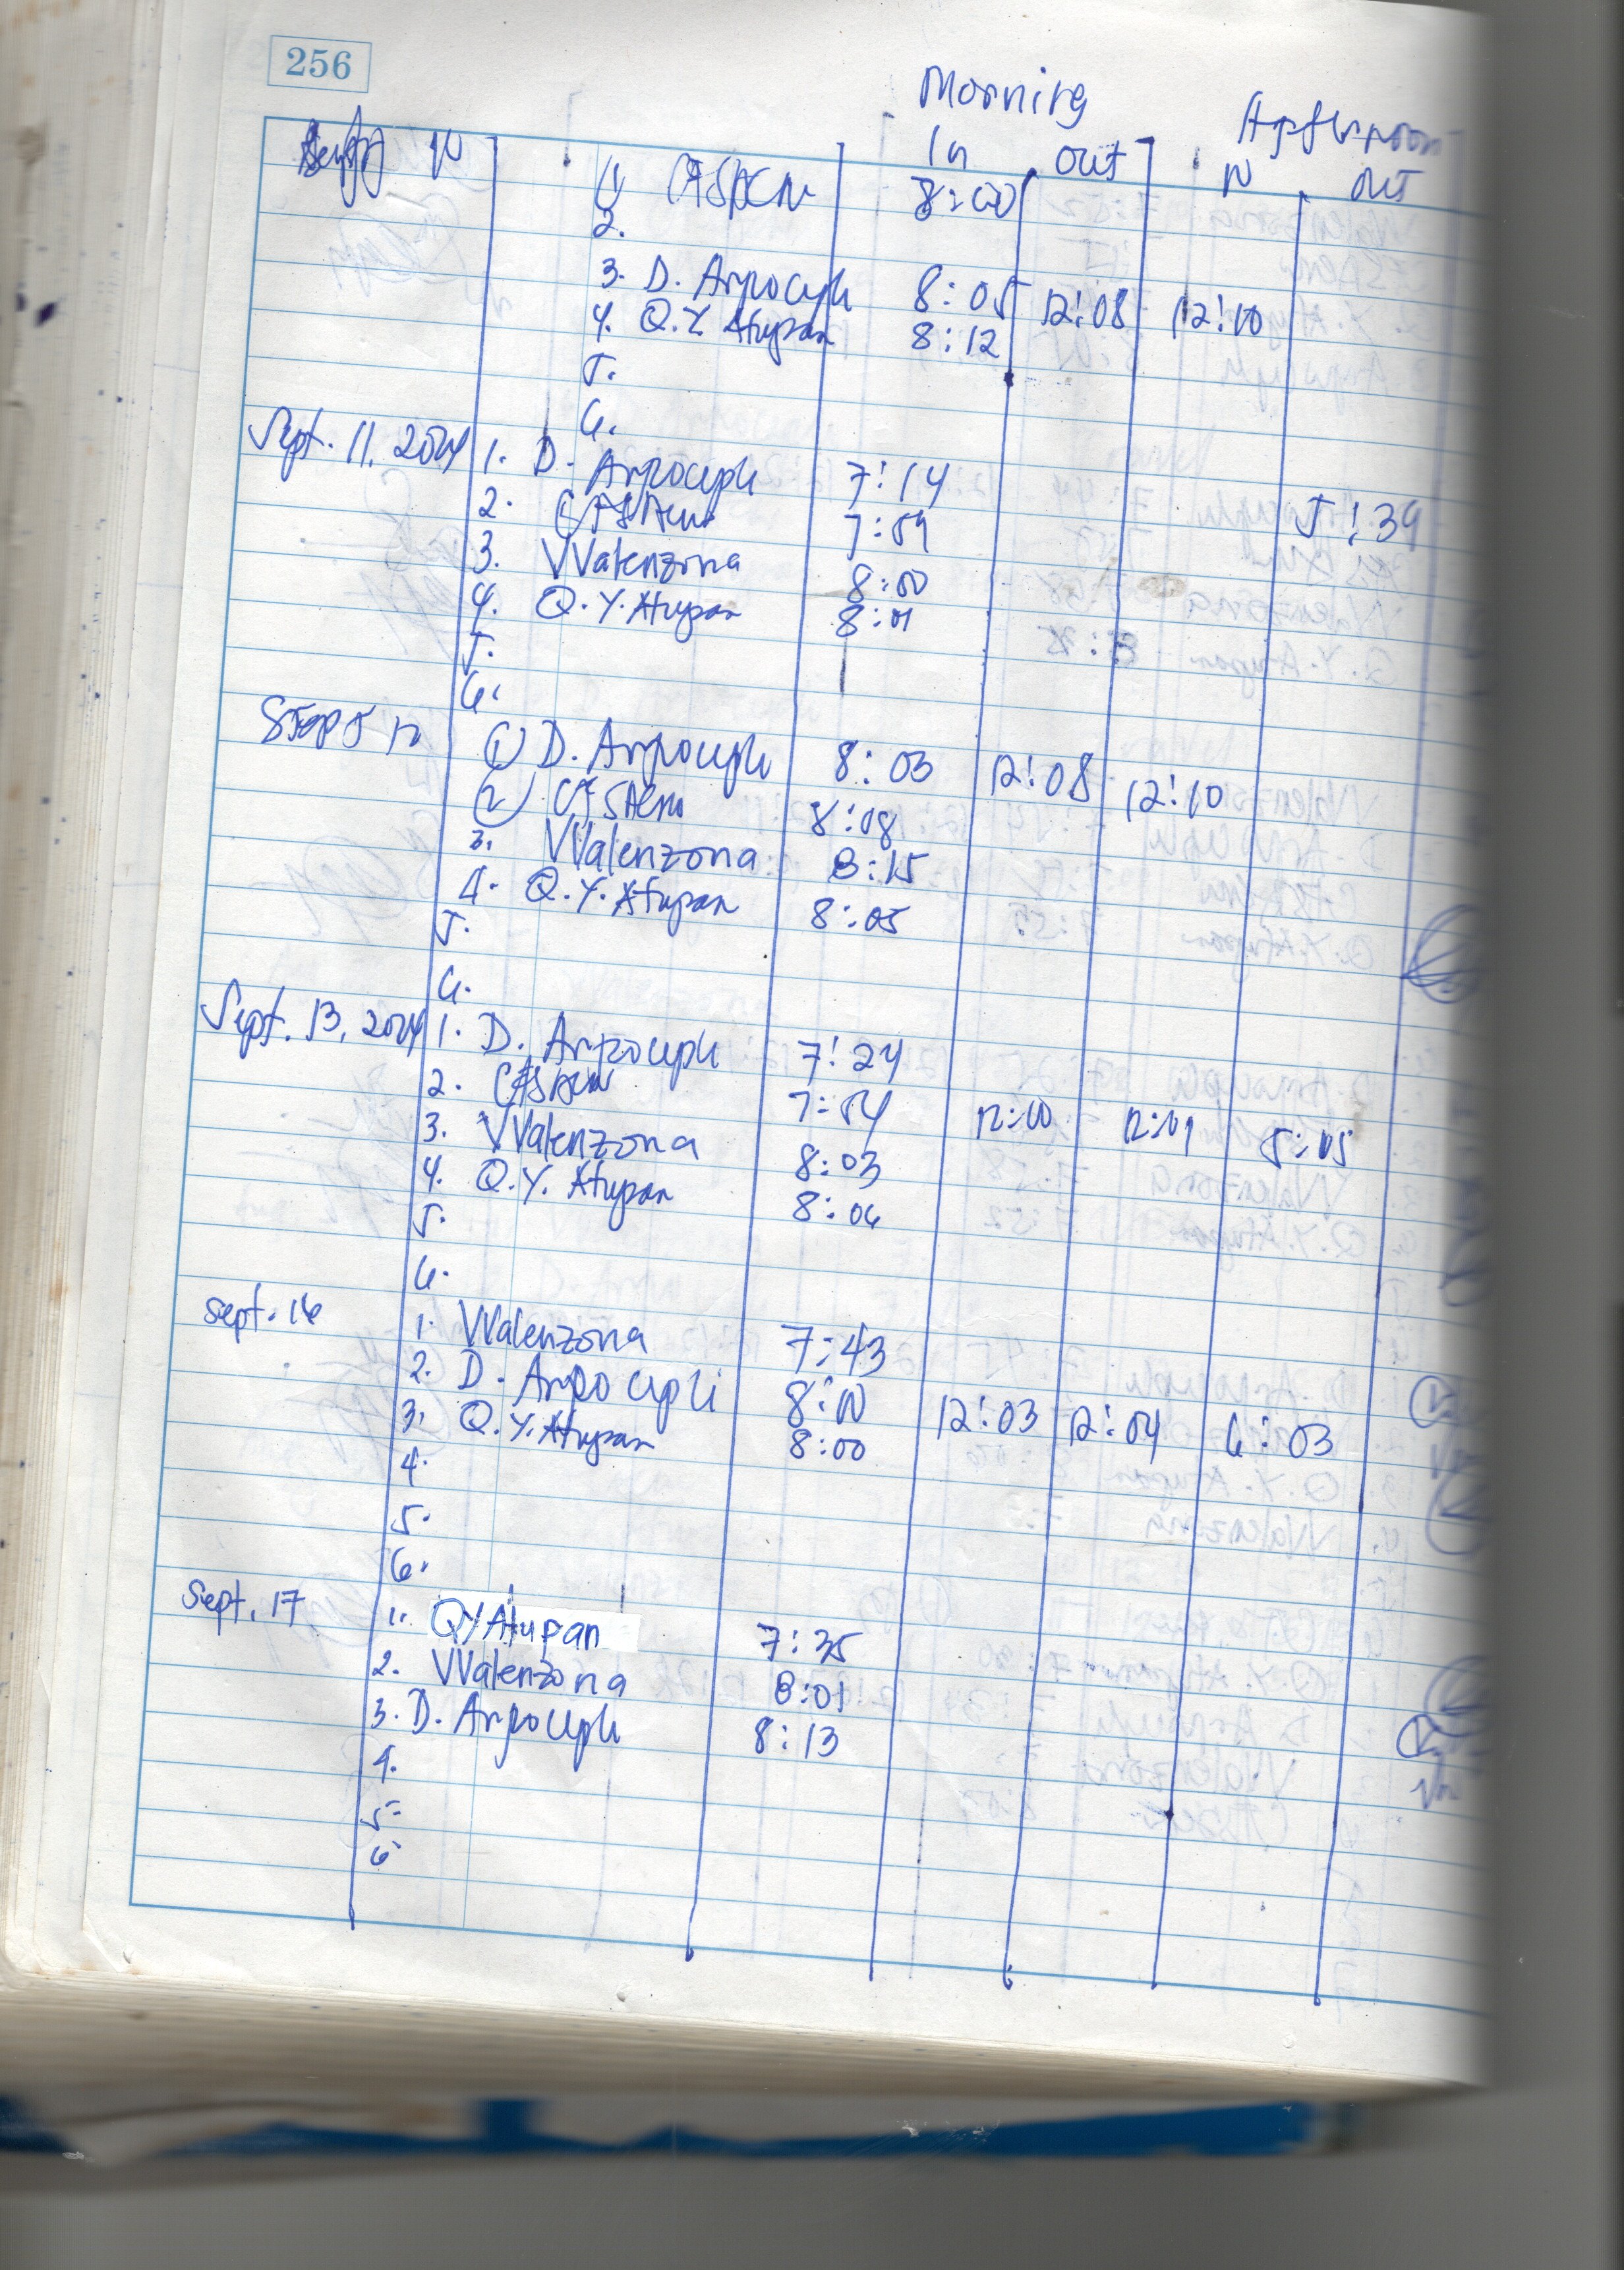 256
Morning Afternoon
In Out N OUT
1) 8:00
2.
3. D. 8:05 12:08 12:10
4. Q.Y. Atupan 8:12
5.
6.
Sept. 11, 2024 1. D. 7:14
2. 7:59 5:39
3. VValenzona 8:00
4. Q.Y. Atupan 8:01
5.
6.
Sept 12 (1) D. 8:03 12:08 12:10
(2) 8:08
3. VValenzona 8:15
4. Q.Y. Atupan 8:05
5.
6.
Sept. 13, 2024 1. D. 7:24
2. 7:54 12:00 12:01 5:05
3. VValenzona 8:03
4. Q.Y. Atupan 8:06
5.
6.
Sept. 16 1. VValenzona 7:43
2. D. 8:10 12:03 12:04 6:03
3. Q.Y. Atupan 8:00
4.
5.
6.
Sept. 17 1. QYAtupan 7:35
2. VValenzona 8:01
3. D. 8:13
4.
5.
6.